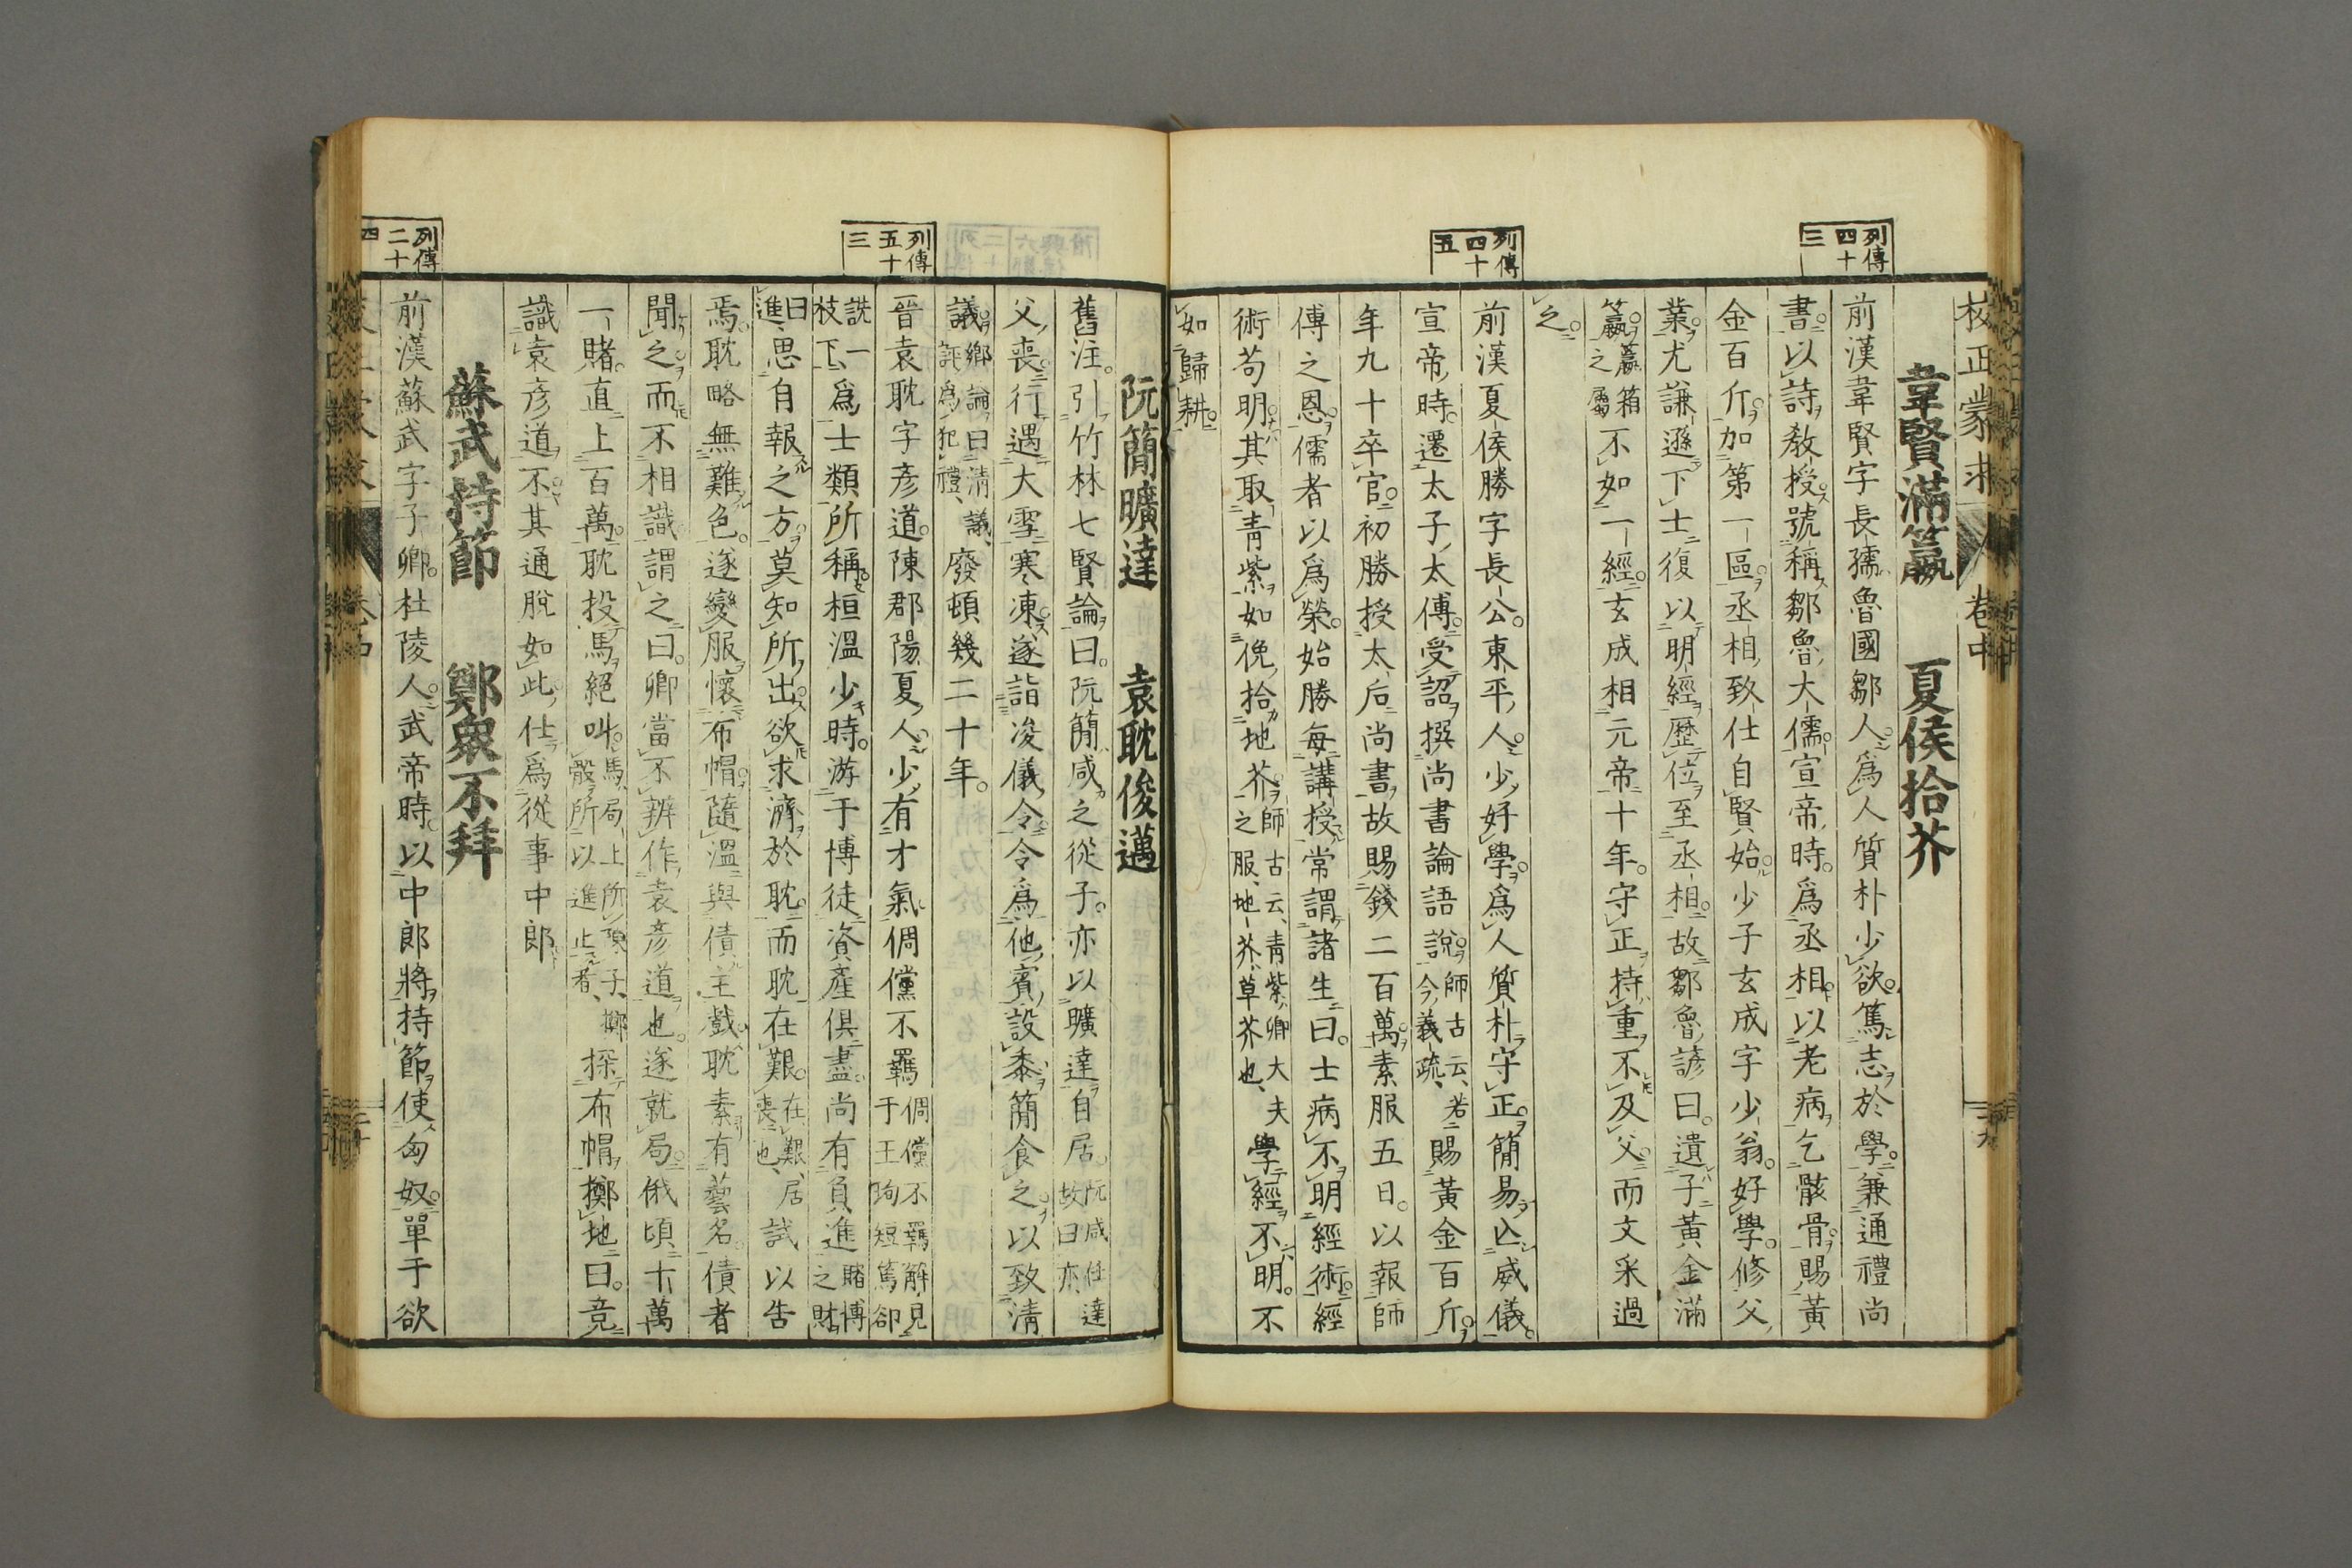 校正蒙求 卷中
韋賢滿籯 夏侯拾芥
列傳四十三
前漢韋賢字長孺魯國鄒人爲人質朴少欲篤志於學兼通禮尚
書以詩教授號稱鄒魯大儒宣帝時爲丞相以老病乞骸骨賜黃
金百斤加第一區丞相致仕自賢始少子玄成字少翁好學修父
業尤謙遜下士復以明經歷位至丞相故鄒魯諺曰遺子黃金滿
籯籯箱之屬不如一經玄成相元帝十年守正持重不及父而文采過
之
列傳四十五
前漢夏侯勝字長公東平人少好學爲人質朴守正簡易亾威儀
宣帝時遷太子太傅受詔撰尚書論語說師古云若今義疏賜黃金百斤
年九十卒官初勝授太后尚書故賜錢二百萬素服五日以報師
傅之恩儒者以爲榮始勝每講授常謂諸生曰士病不明經術經
術苟明其取青紫如俛拾地芥師古云青紫卿大夫之服地芥草芥也學經不明不
如歸耕
阮簡曠達 袁耽俊邁
舊注引竹林七賢論曰阮簡咸之從子亦以曠達自居阮咸任達故曰亦
父喪行遇大雪寒凍遂詣浚儀令令爲他賓設黍簡食之以致清
議鄉論曰清議評爲犯禮廢頓幾二十年
列傳五十三
晉袁耽字彥道陳郡陽夏人少有才氣倜儻不羈倜儻不羈解見于王珣短篤卻
詵一枝下爲士類所稱桓溫少時游于博徒資產俱盡尚有負進賭博之財
曰進思自報之方莫知所出欲求濟於耽而耽在艱在艱居喪也試以告
焉耽略無難色遂變服懷布帽隨溫與債主戲耽素有藝名債者
聞之而不相識謂之曰卿當不辨作袁彥道也遂就局俄頃十萬
一賭直上百萬耽投馬絕叫馬局上所以進止者探布帽擲地曰竟
識袁彥道不其通脫如此仕爲從事中郎
蘇武持節 鄭衆不拜
列傳二十四
前漢蘇武字子卿杜陵人武帝時以中郎將持節使匈奴單于欲